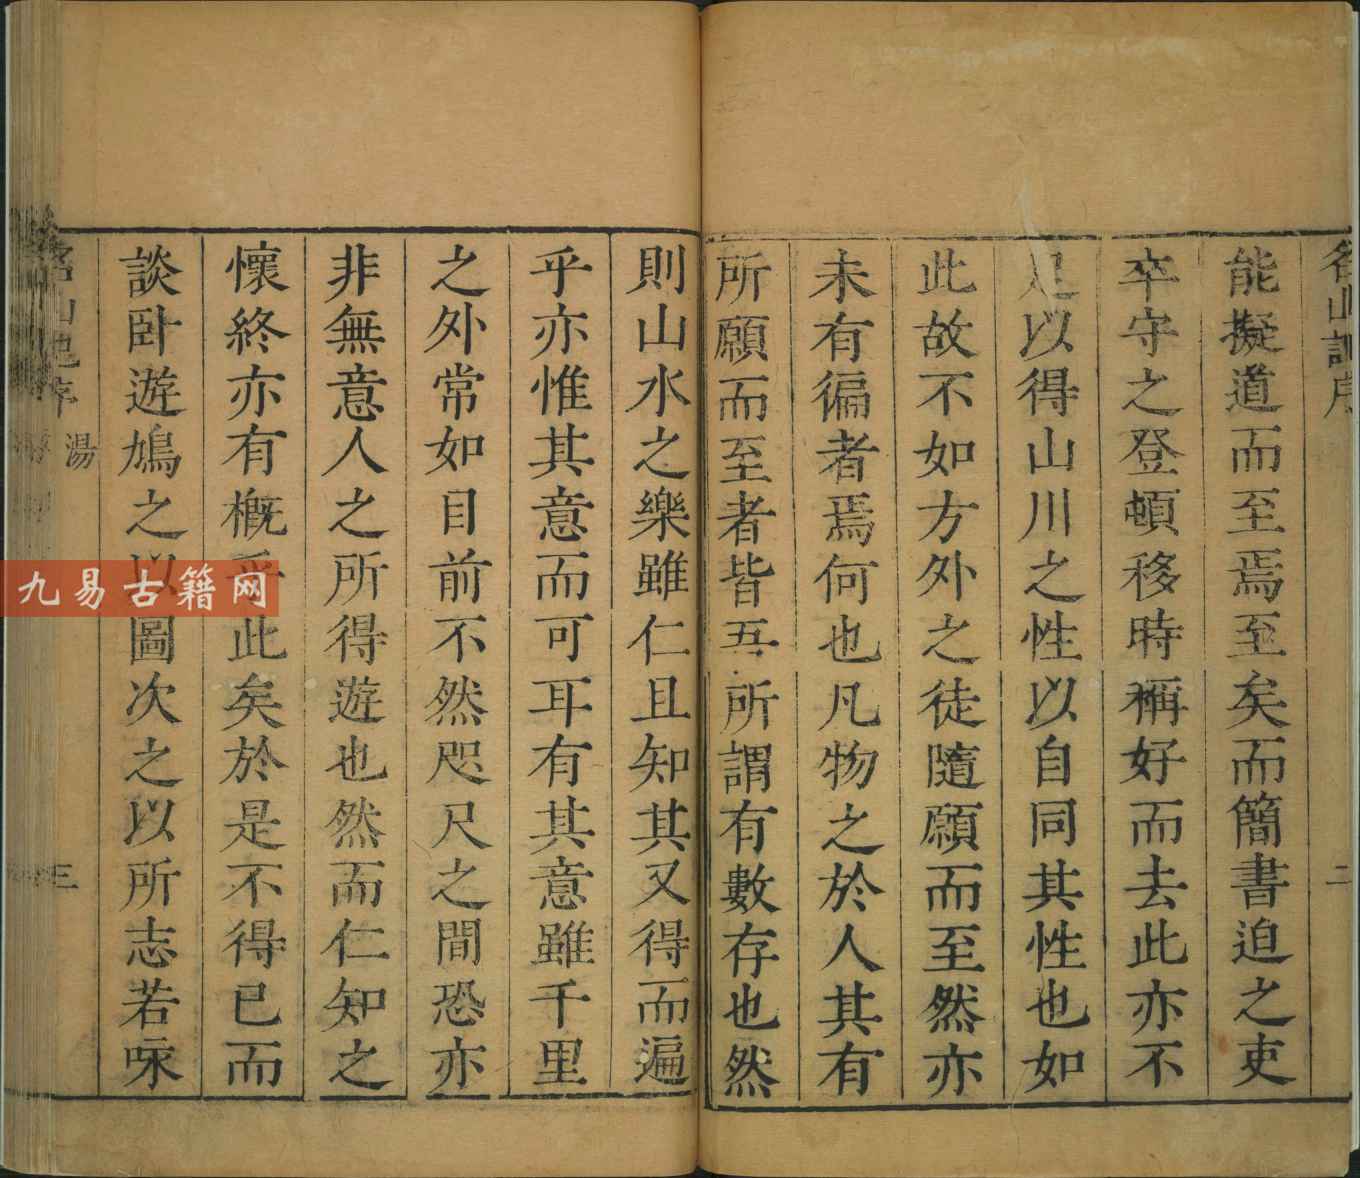 名山記序
二
能擬道而至焉至矣而簡書迫之吏
卒守之登頓移時稱好而去此亦不
足以得山川之性以自同其性也如
此故不如方外之徒隨願而至然亦
未有徧者焉何也凡物之於人其有
所願而至者皆吾所謂有數存也然
則山水之樂雖仁且知其又得而遍
乎亦惟其意而可耳有其意雖千里
之外常如目前不然咫尺之間恐亦
非無意人之所得遊也然而仁知之
懷終亦有概乎此矣於是不得已而
談卧遊鳩之以圖次之以所志若咏
名山記序
湯
三
九易古籍网